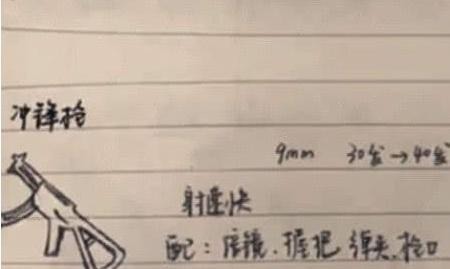 冲锋枪
9mm 30发→40发
射速快
配：倍镜、握把、弹夹、枪口